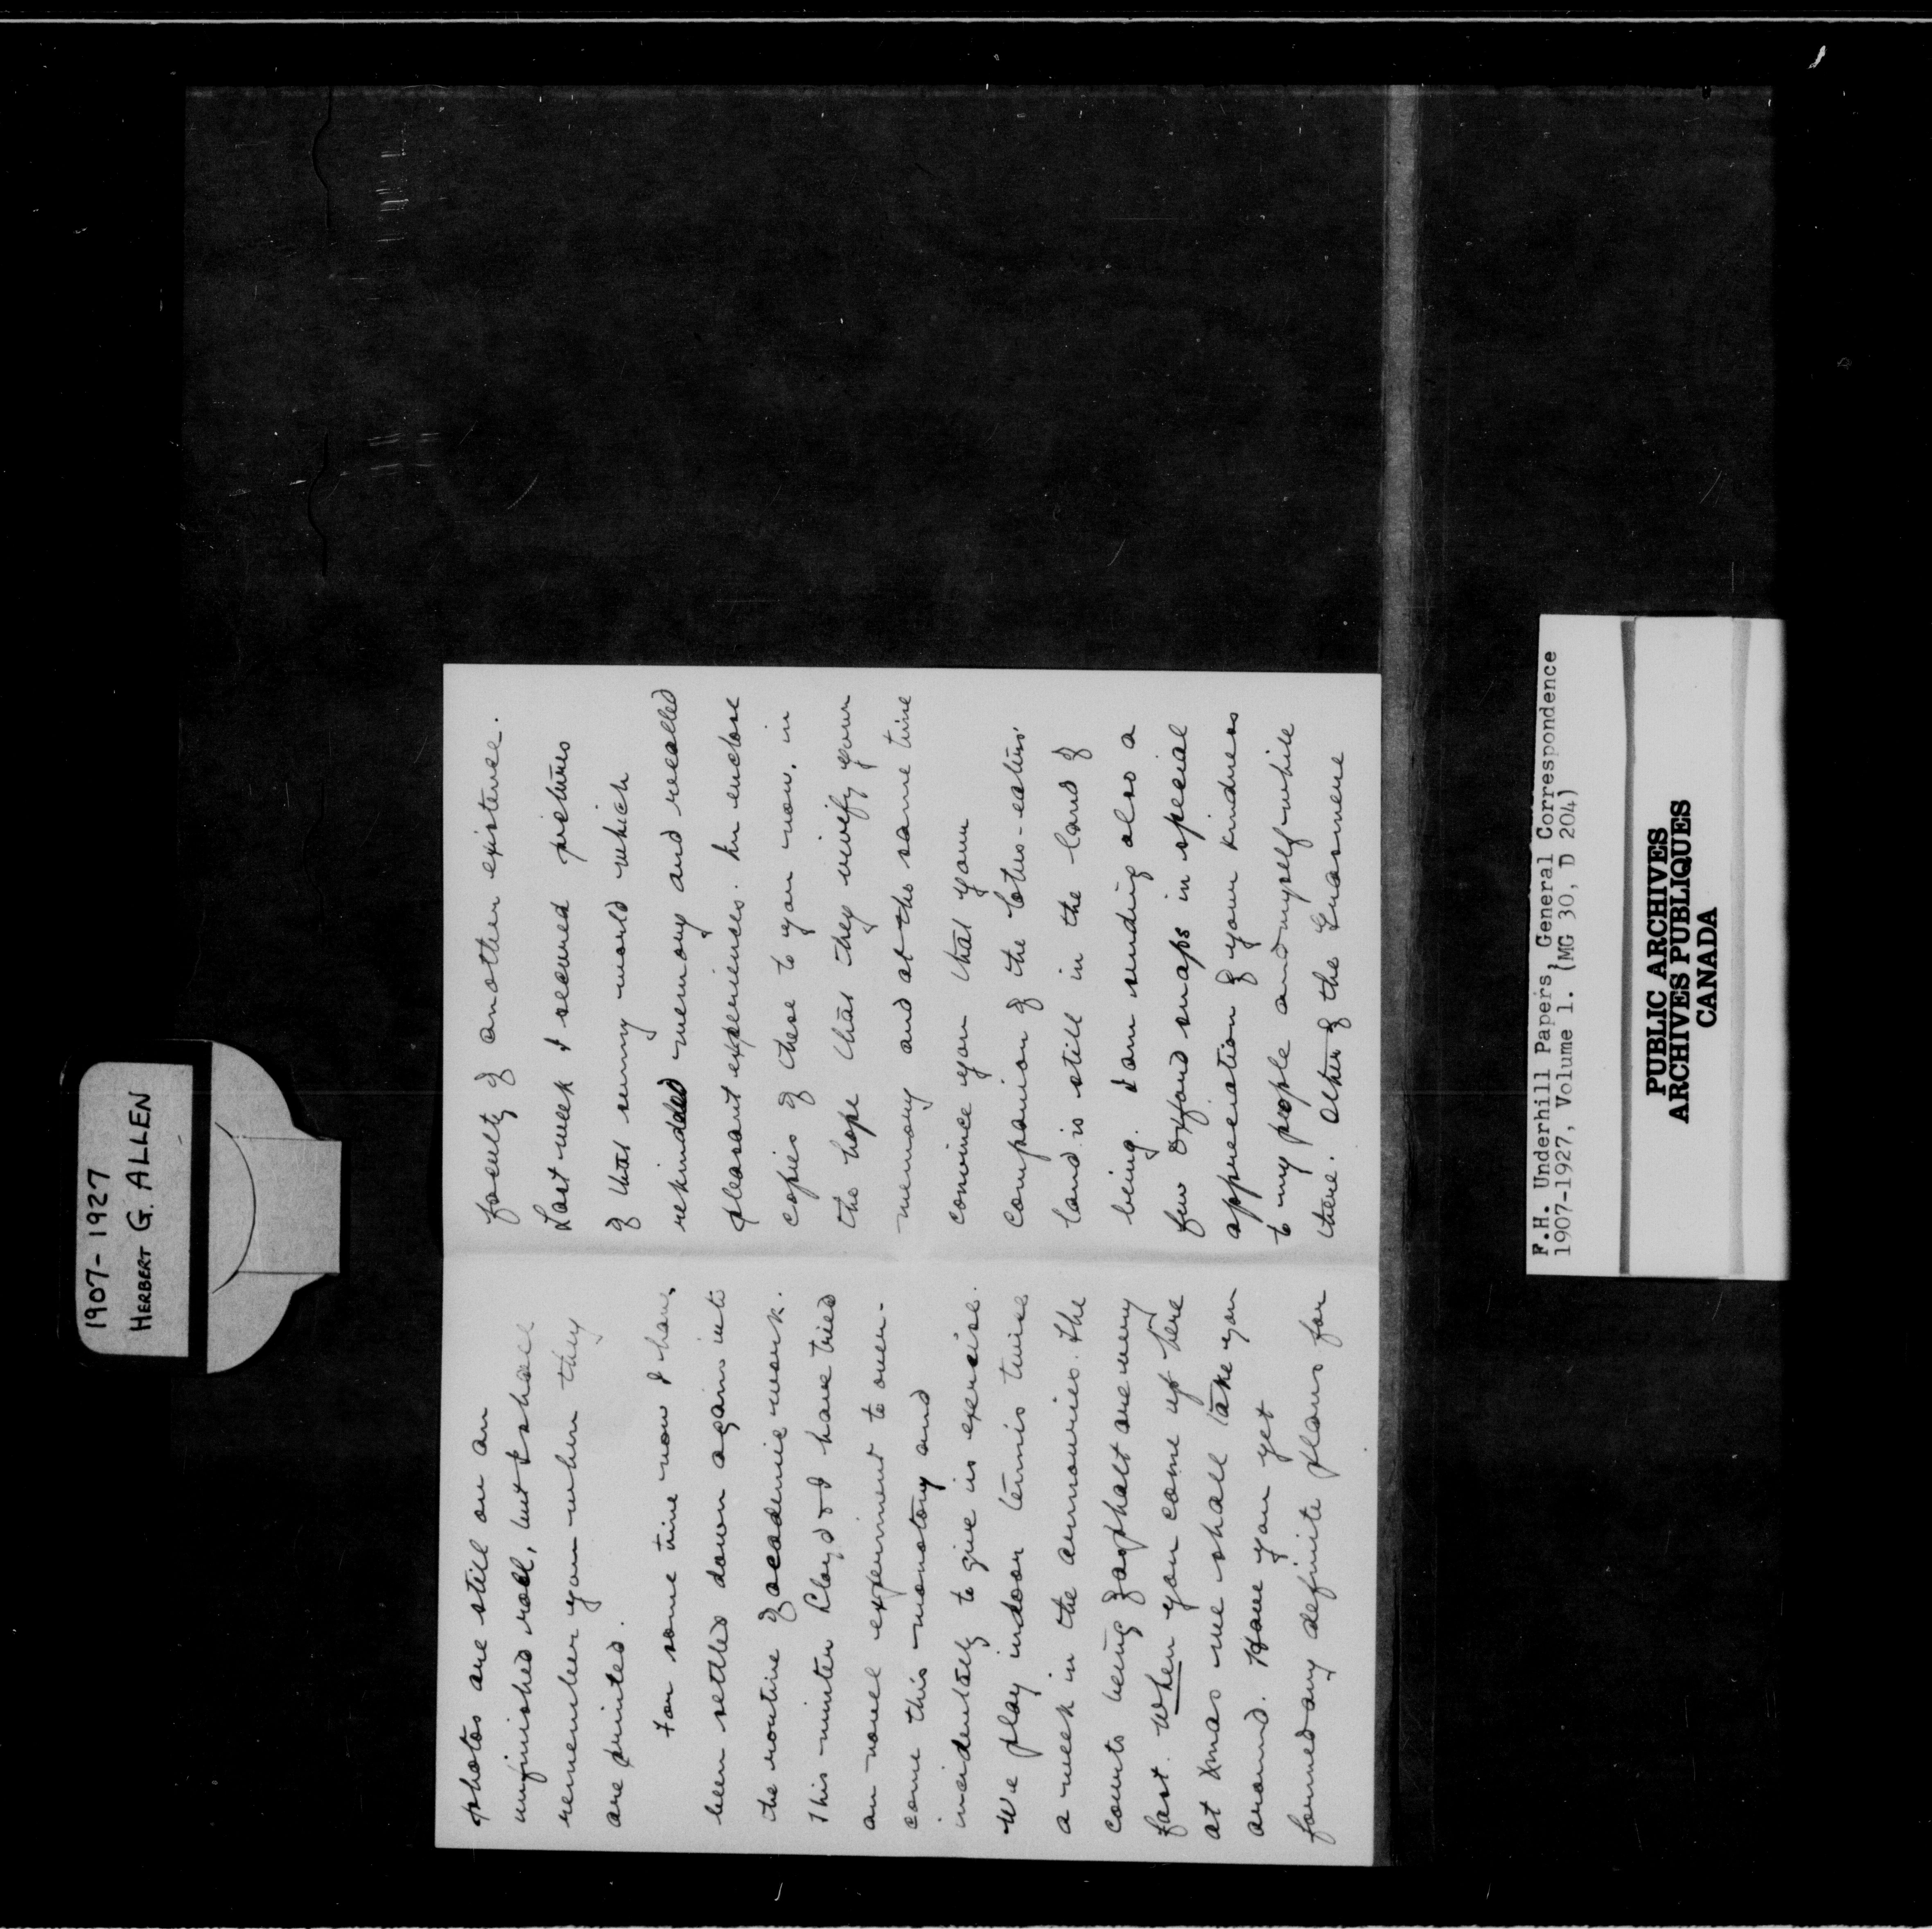 1907-1927
HERBERT G. ALLEN
photos are still on an
unfinished roll, but I shall
remember you when they
are printed.
For some time now I have
been settled down again into
the routine of academic work.
This winter Lloyd & I have tried
an novel experiment to over-
come this monotony and
incidentally to give us exercise.
We play indoor tennis twice
a week in the armouries. The
courts being of asphalt are very
fast. When you come up here
at Xmas we shall take you
around. Have you yet
formed any definite plans for
faculty of another existence.
Last week I secured pictures
of that sunny world which
rekindled memory and recalled
pleasant experiences. I'm enclose
copies of these to you now, in
the hope that they vivify your
memory and at the same time
convince you that your
companion of the lotus-eaters'
land is still in the land of
being. I am sending also a
few Oxford snaps in special
appreciation of your kindness
to my people and myself while
there. Other of the Grasmere
F.H. Underhill Papers, General Correspondence
1907-1927, Volume 1. (MG 30, D 204)
PUBLIC ARCHIVES
ARCHIVES PUBLIQUES
CANADA